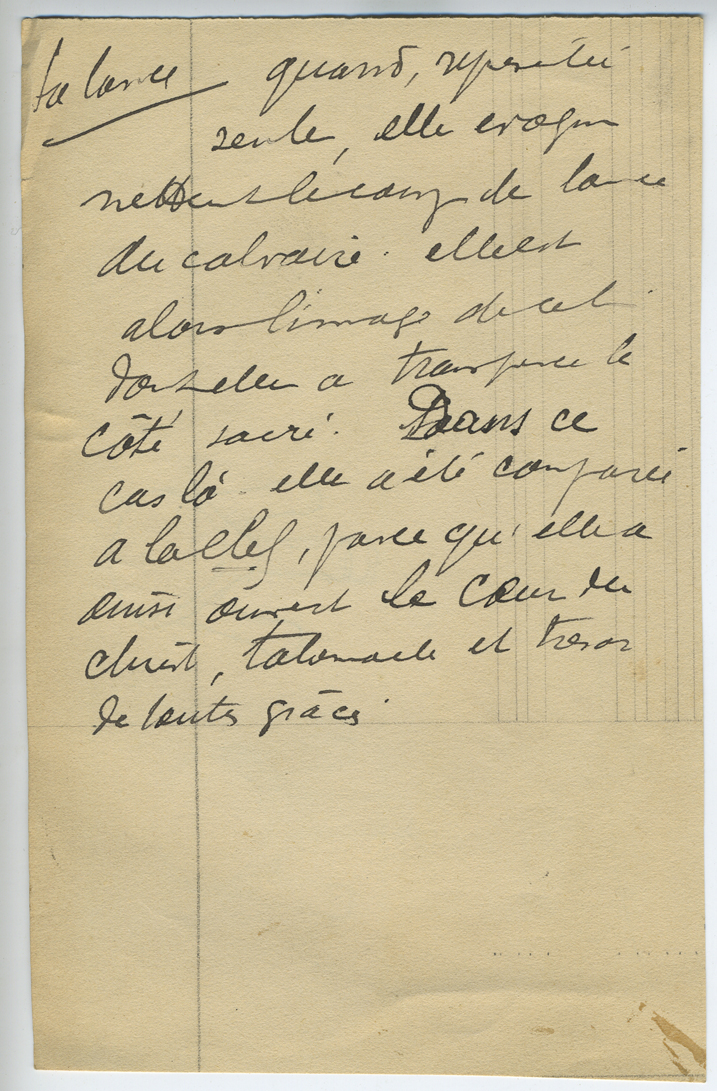 La lance quand, représentée
seule, elle évoque
nettement le coup de lance
du calvaire. elle est
alors l'image de celle
dont elle a transpercé le
côté sacré. Dans ce
cas là elle a été comparée
a la clef, parce qu'elle a
ainsi ouvert le Cœur du
christ, tabernacle et trésor
de toutes grâces.